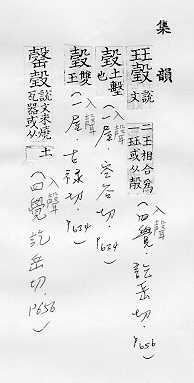 集韻
玨瑴 說文二玉相合爲一玨或从㱿(入聲四覺.訖岳切.P656)
土墼也(入聲一屋.空谷切.P634)
瑴 雙玉(入聲一屋.古祿切.P634)
說文未燒瓦器或从土(入聲四覺訖岳切.P656)